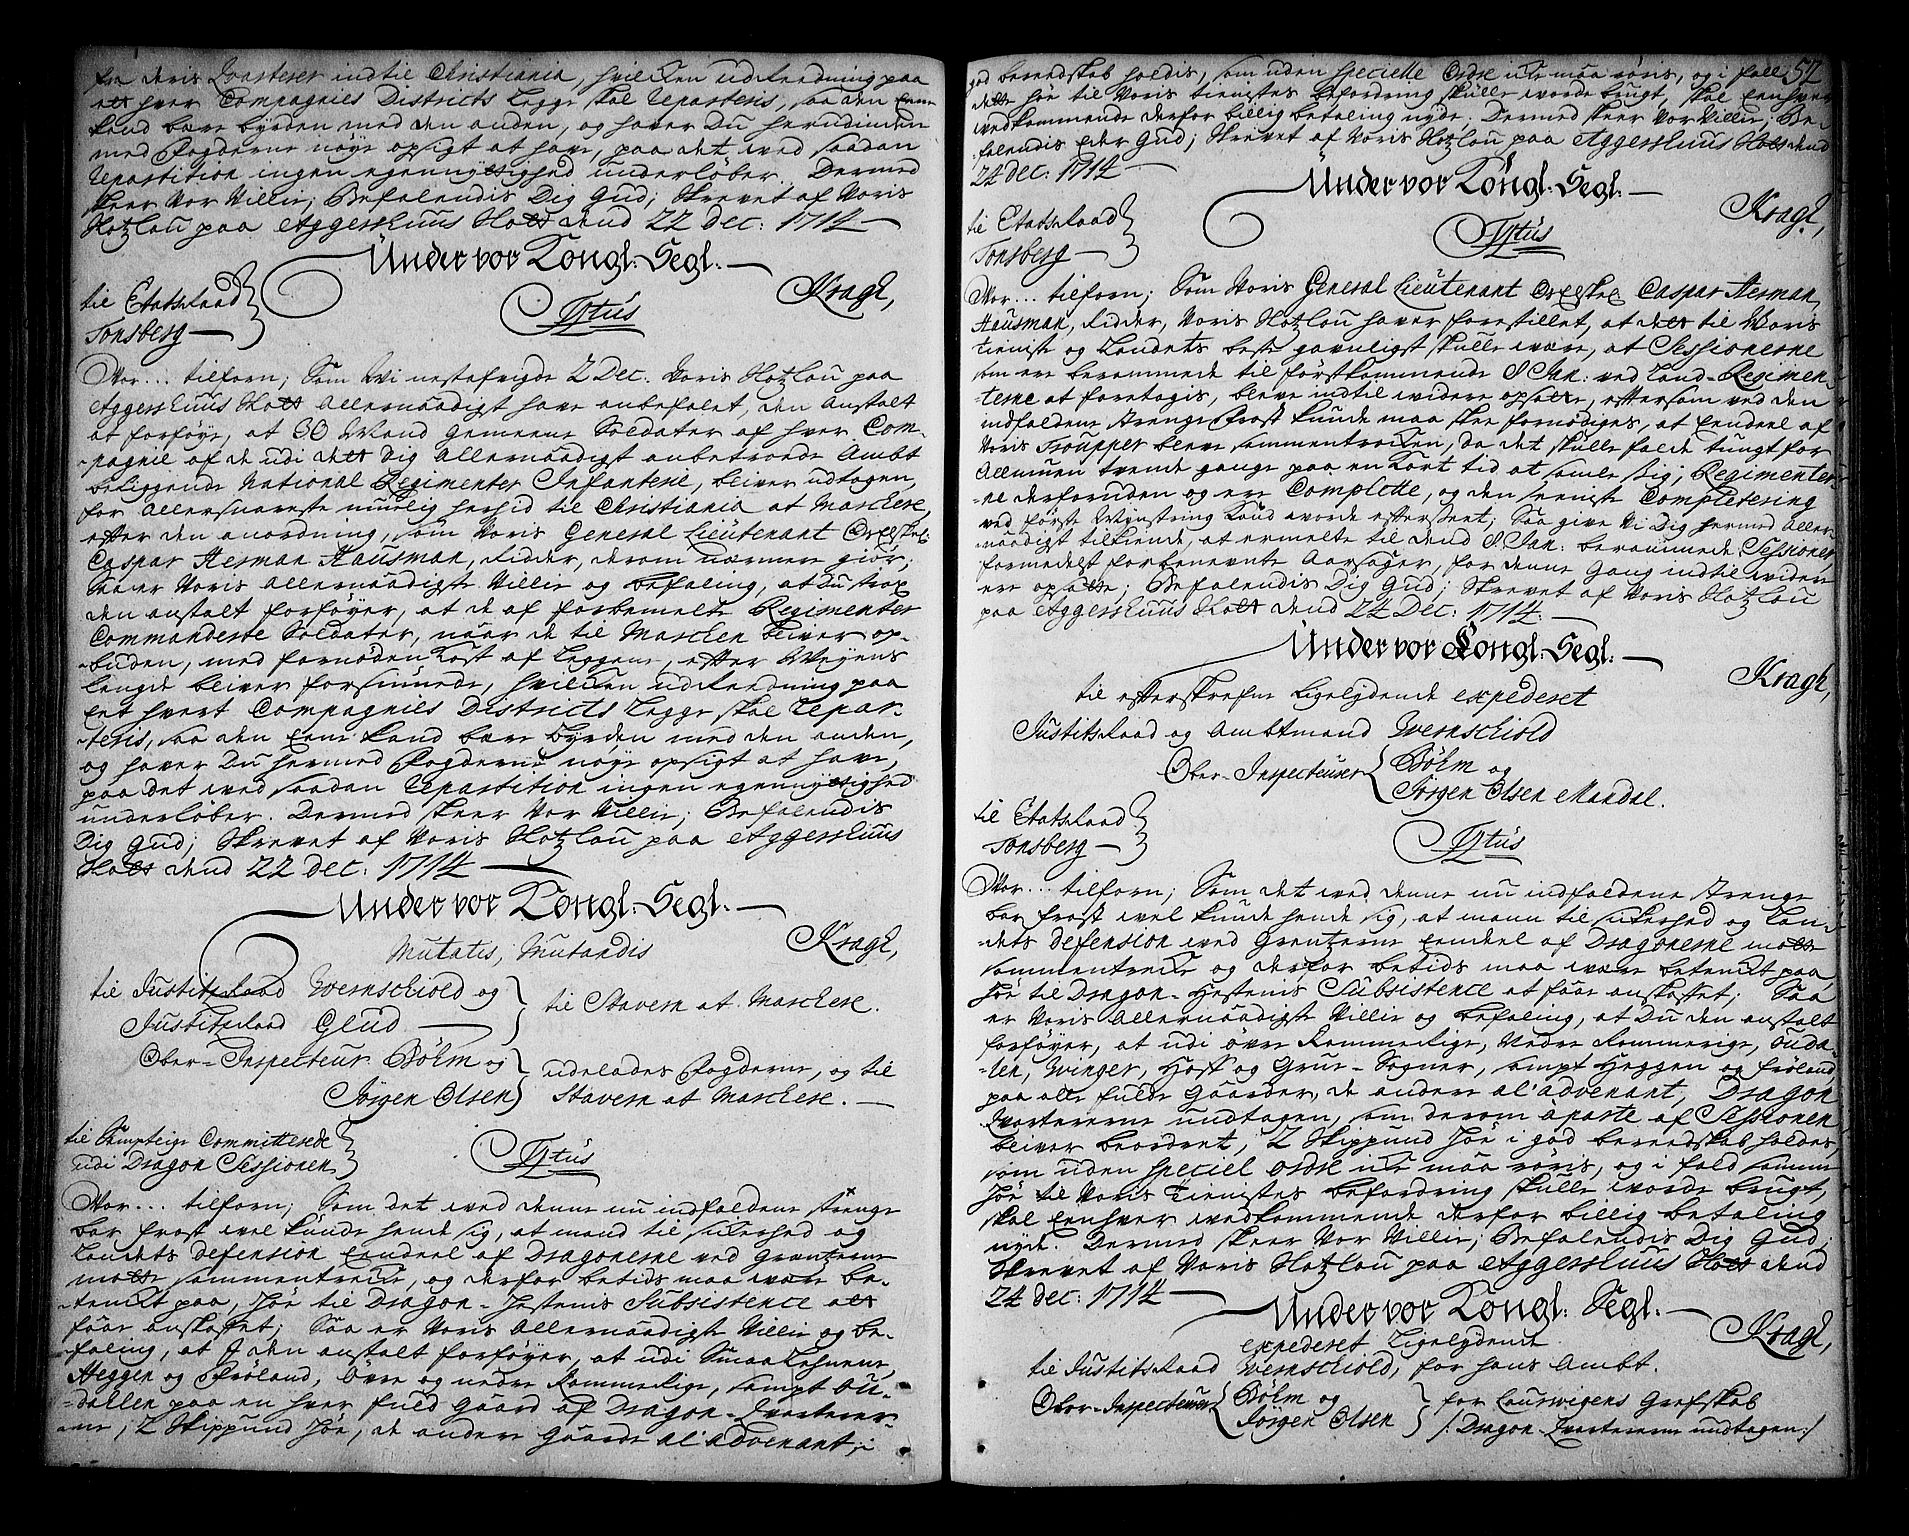 fra deris Qvarterer indtil Christiania, hvilken udreedning paa
ett hver Compagnies Districts Legge skal Reparteris, saa den Eene
kand bære byrden med den anden, og haver Du herudinden
med Fogderne nøye opsigt at have, paa det ved saadan
Repartition ingen egennyttighed underløber. Dermed
skeer Vor Villie, Befalendis Dig Gud; Skrevet af Voris
Slotzlou paa Aggershuus Slott dend 22 Dec: 1714
Under vor Kongl: Segl.
Kragh,
til Etatsraad
Tonsberg
Titus
Vor... tilforn; Som Wi nestafvigte 2 Dec. Voris Slotzlou paa
Aggershuus Slott Allernaadigst have anbefalet, den Anstalt
at forføye, at 30 Mand gemeene Soldater af hver Com-
pagnie af de udi dett Dig Allernaadigst anbetroede Ambt
beliggende National Regimenter Infanterie, bliver udtagen,
for Allersnareste muelig herhid til Christiania at Marchere,
efter den anordning, som Voris General Lieutenant Os Elskel:
Caspar Herman Hausman, Ridder, derom nærmere giør;
Saa er Voris Allernaadigste Villie og befaling, at Du strax
den anstalt forføyer, at de af forbemelte Regimenter
Commanderte Soldater, naar de til Marchen bliver op-
buden, med fornøden Kost af Leggene, efter Weyens
lengde bliver forsiunede, hvilken udreedning paa
Eet hvert Compagnies Districts Legge skal Repar-
teris, saa den Eene kand bære Byrden med den anden,
og haver Du hermed Fogderne nøye opsigt at have,
paa det ved saadan Repartition ingen egennyttighed
underløber. Dermed skeer Vor Villie, Befalendis
Dig Gud; Skrevet af Voris Slotzlou paa Aggershuus
Slott dend 22 Dec: 1714
Under vor Kongl: Segl.
Kragh,
Mutatis, Mutandis
til Justitzraad Wernschiold og
Justitzraad Glud
til Stavern at Marchere.
Ober-Inspecteur Bøhm og
Jørgen Olsen
udelades Fogderne, og til
Stavern at Marchere.
til Samptlige Committerede
udi Dragon Sessionen
Titus
Vor... tilforn; Som det ved denne nu indfaldene strenge
bar frost vel kunde hende sig, at mand til sikerhed og
Landets defension Eendeel af Dragonerne ved Grentzerne
motte sammentrecke, og derfor betids maa være be-
tenkt paa, Høe til Dragon-Hestenis Subsistence att
faae anskaffet; Saa er Voris Allernaadigste Villie og be-
faling, at I den anstalt forføyer, at udi Smaalehnene,
Heggen og Frøland, Øvre og nedre Rommerige, sampt Ou-
dallen paa en hver fuld Gaard af Dragon-Qvarterer-
ne, 2 Skippund Høe, de andre Gaarde al'advenant, i
57
god beredskab holdis, som uden Specielle Ordre icke maa røris, og i fald
dette Høe til Voris tienistes Befordring skulle worde brugt, skal Eenhver
vedkommende derfor billig betaling nyde. Dermed skeer Vor Villie, Be-
falendis Eder Gud; Skrevet af Voris Slotzlou paa Aggershuus Slott dend
24 Dec: 1714
Under vor Kongl: Segl.
Kragh,
til Etatsraad
Tonsberg
Titus
Vor... tilforn; Som Voris General Lieutenant Os Elskel: Caspar Herman
Hausman, Ridder, Voris Slotzlou haver forestillet, at dett til Voris
tieniste og Landets beste gavnligst skulle være, at Sessionerne
som ere berammede til førstkommende 8 Jan: ved Land-Regimen-
terne at foretagis, bleve indtil widere opsatte, eftersom ved den
indfaldene strenge Frost kunde maa skee fornødiges, at Eendeel af
Voris Troupper bleve sammentrocken, da det skulle falde tungt for
Allmuen tvende gange paa en kort tid at samle sig, Regimenter-
ne derforuden og ere Complette, og den seeniste Completering
ved første Mynstring kand worde efterseet; Saa give Vi Dig hermed Aller-
naadigst tilkiende, at ermelte til dend 8 Jan: berammede Sessioner
formedelst forbenevnte Aarsager, for denne gang indtil widere
ere opsatte; Befalendis Dig Gud; Skrevet af Voris Slotzlou
paa Aggershuus Slott dend 24 Dec: 1714.
Under vor Kongl: Segl.
Kragh,
til efterskrefne Ligelydende expederet
Justitsraad og Ambtmand Wernschiold
Ober-Inspecteurer Bøhm og
Jørgen Olsen Mandal.
til Etatsraad
Tonsberg
Titus
Vor... tilforn; Som det ved denne nu indfaldene strenge
bar frost vel kunde hende sig, at mann til sikerhed og Lan-
dets defension ved Grentzerne Eendeel af Dragonerne motte
sammentrecke og derfor betids maa være betenkt paa,
Høe til Dragon-Hestenis Subsistence at faae anskaffet; Saa
er Voris Allernaadigste Villie og befaling, at Du den anstalt
forføyer, at udi Øvre Rommerige, Nedre Rommerige, Ouda-
len, Winger, Hoff og Grue-Sogner, sampt Heggen og Frøland,
paa alle fulde Gaarder, de andre al'advenant, Dragon
Qvartererne undtagen, som derom aparte af Sessionen
bliver beordret, 2 Skippund Høe i god beredskab holdes,
som uden Speciel Ordre icke maa røris, og i fald samme
Høe til Voris Tienistes befordring skulle worde brugt,
skal Eenhver vedkommende derfor billig betaling
nyde. Dermed skeer Vor Villie, Befalendis Dig Gud;
Skrevet af Voris Slotzlou paa Aggershuus Slott dend
24 Dec: 1714
Under vor Kongl: Segl.
Kragh,
expederet Ligelydende
til Justitsraad Wernschiold, for hans Ambt.
Ober-Inspecteurer Bøhm og
Jørgen Olsen
for Laurwigens Grefskab
/: Dragon-Qvartererne undtagen:/